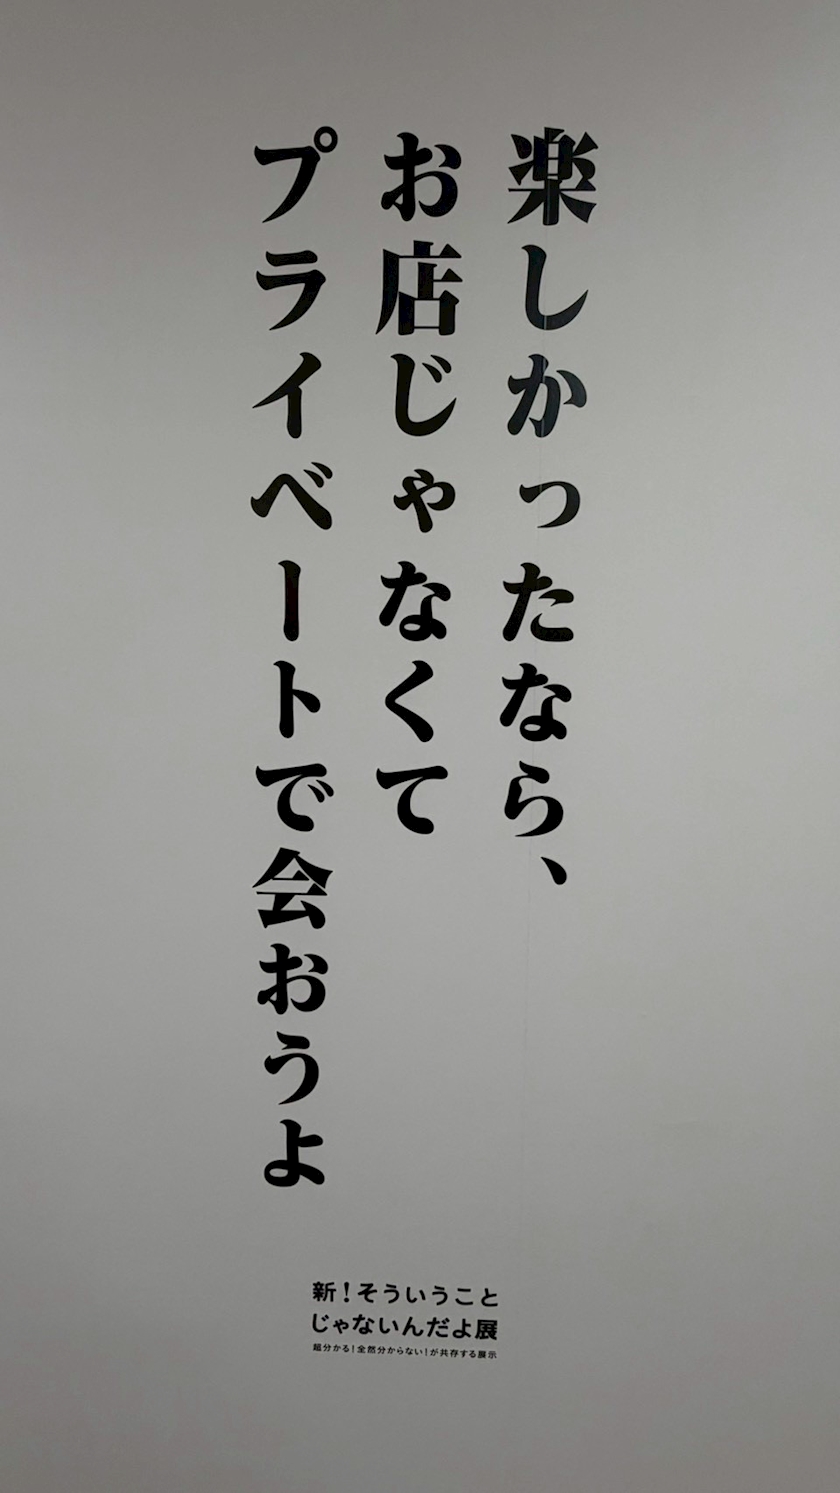 楽しかったなら、
お店じゃなくて
プライベートで会おうよ
新！そういうこと
じゃないんだよ展
超分かる！全然分からない！が共存する展示